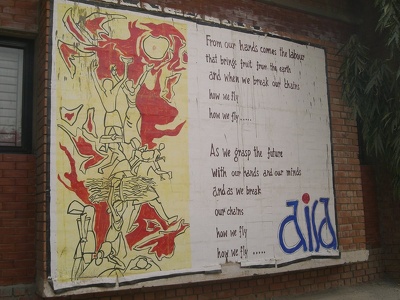 From our hands comes the labour
that brings fruit from the earth
and when we break our chains
how we fly
how we fly .....
As we grasp the future
With our hands and our minds
and as we break
our chains
how we fly
how we fly .....
aisa